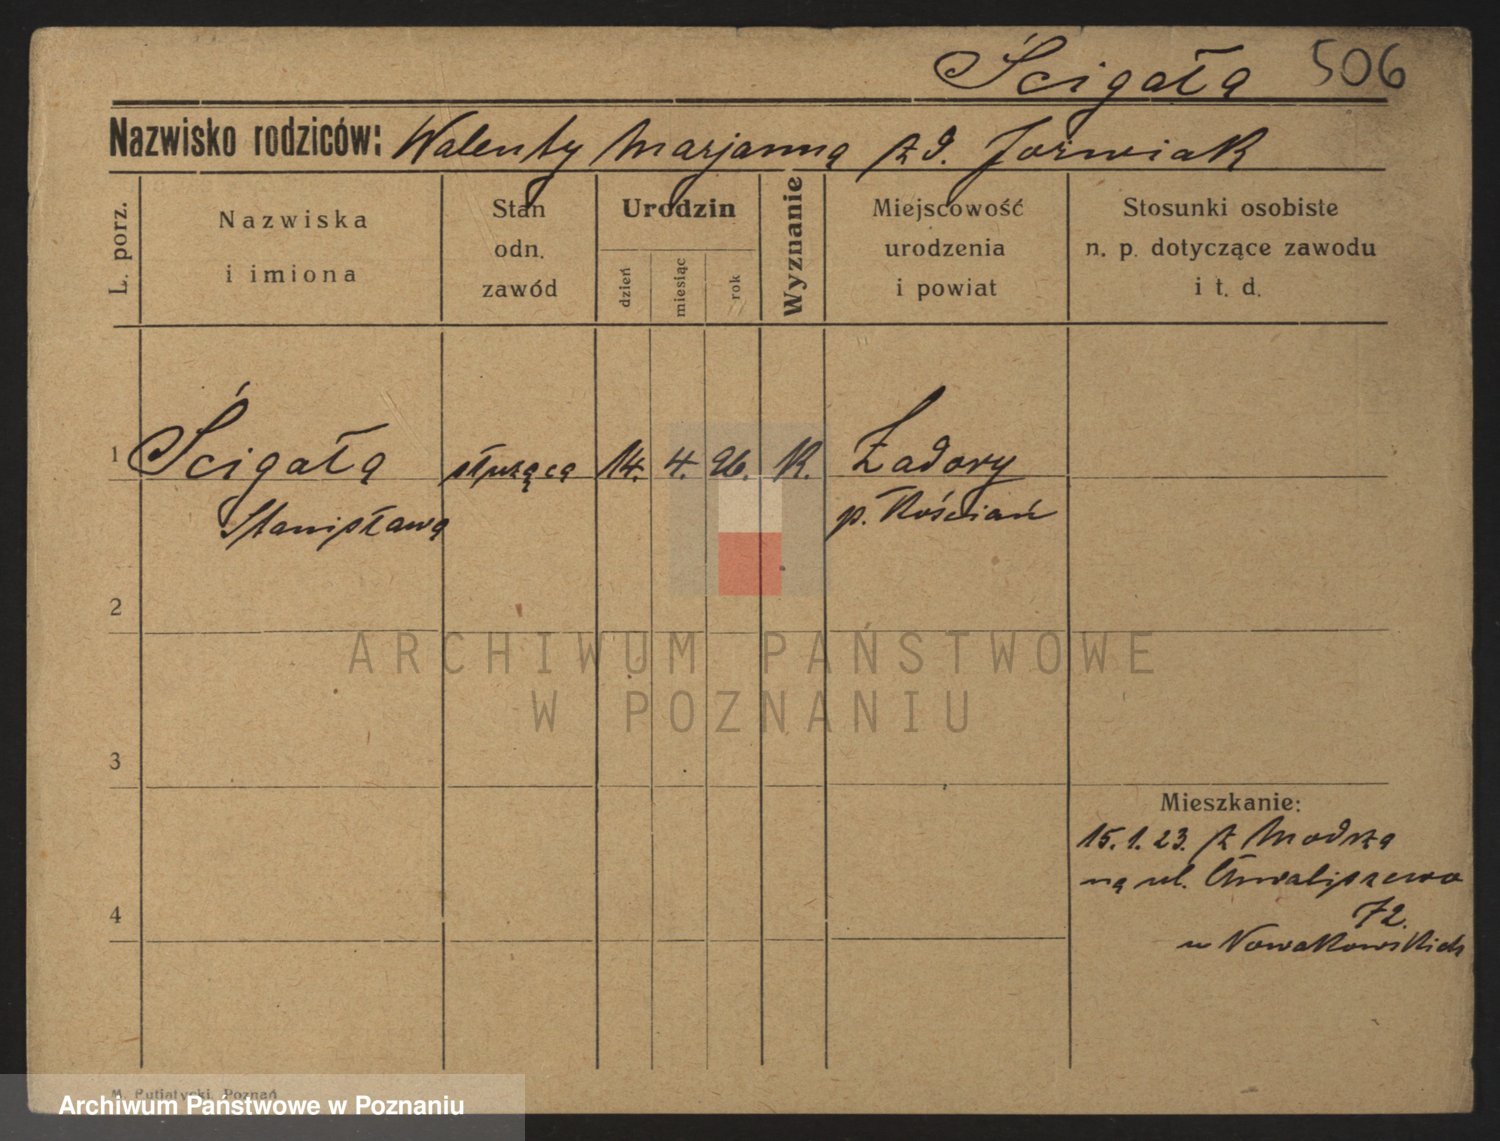 Ścigała 506
Nazwisko rodziców: Walenty Marjanna z d. Jozwiak
L. porz.
Nazwiska
i imiona
Stan
odn.
zawód
Urodzin
dzień
miesiąc
rok
Wyznanie
Miejscowość
urodzenia
i powiat
Stosunki osobiste
n. p. dotyczące zawodu
i t. d.
1 Ścigała służąca 14. 4. 96. K. Zadory
Stanisława p. Kościan
2
3
4
Mieszkanie:
15.1.23. z Modrza
na ul. Chwaliszewo
72.
u Nowakowskich
ARCHIWUM PAŃSTWOWE
W POZNANIU
M. Putiatycki, Poznań
Archiwum Państwowe w Poznaniu